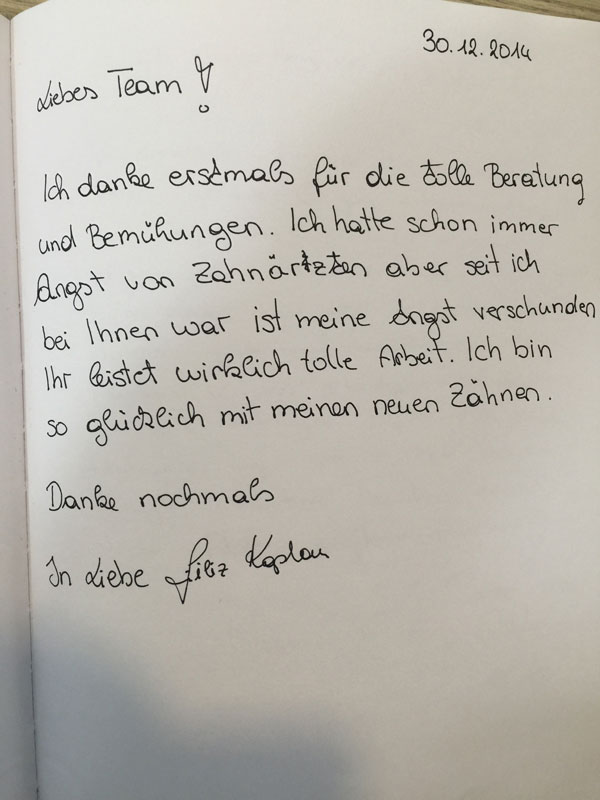 30.12.2014
Liebes Team!
Ich danke erstmals für die tolle Beratung
und Bemühungen. Ich hatte schon immer
Angst von Zahnärtzten aber seit ich
bei Ihnen war ist meine Angst verschunden
Ihr leistet wirklich tolle Arbeit. Ich bin
so glücklich mit meinen neuen Zähnen.
Danke nochmals
In Liebe Filiz Kaplan